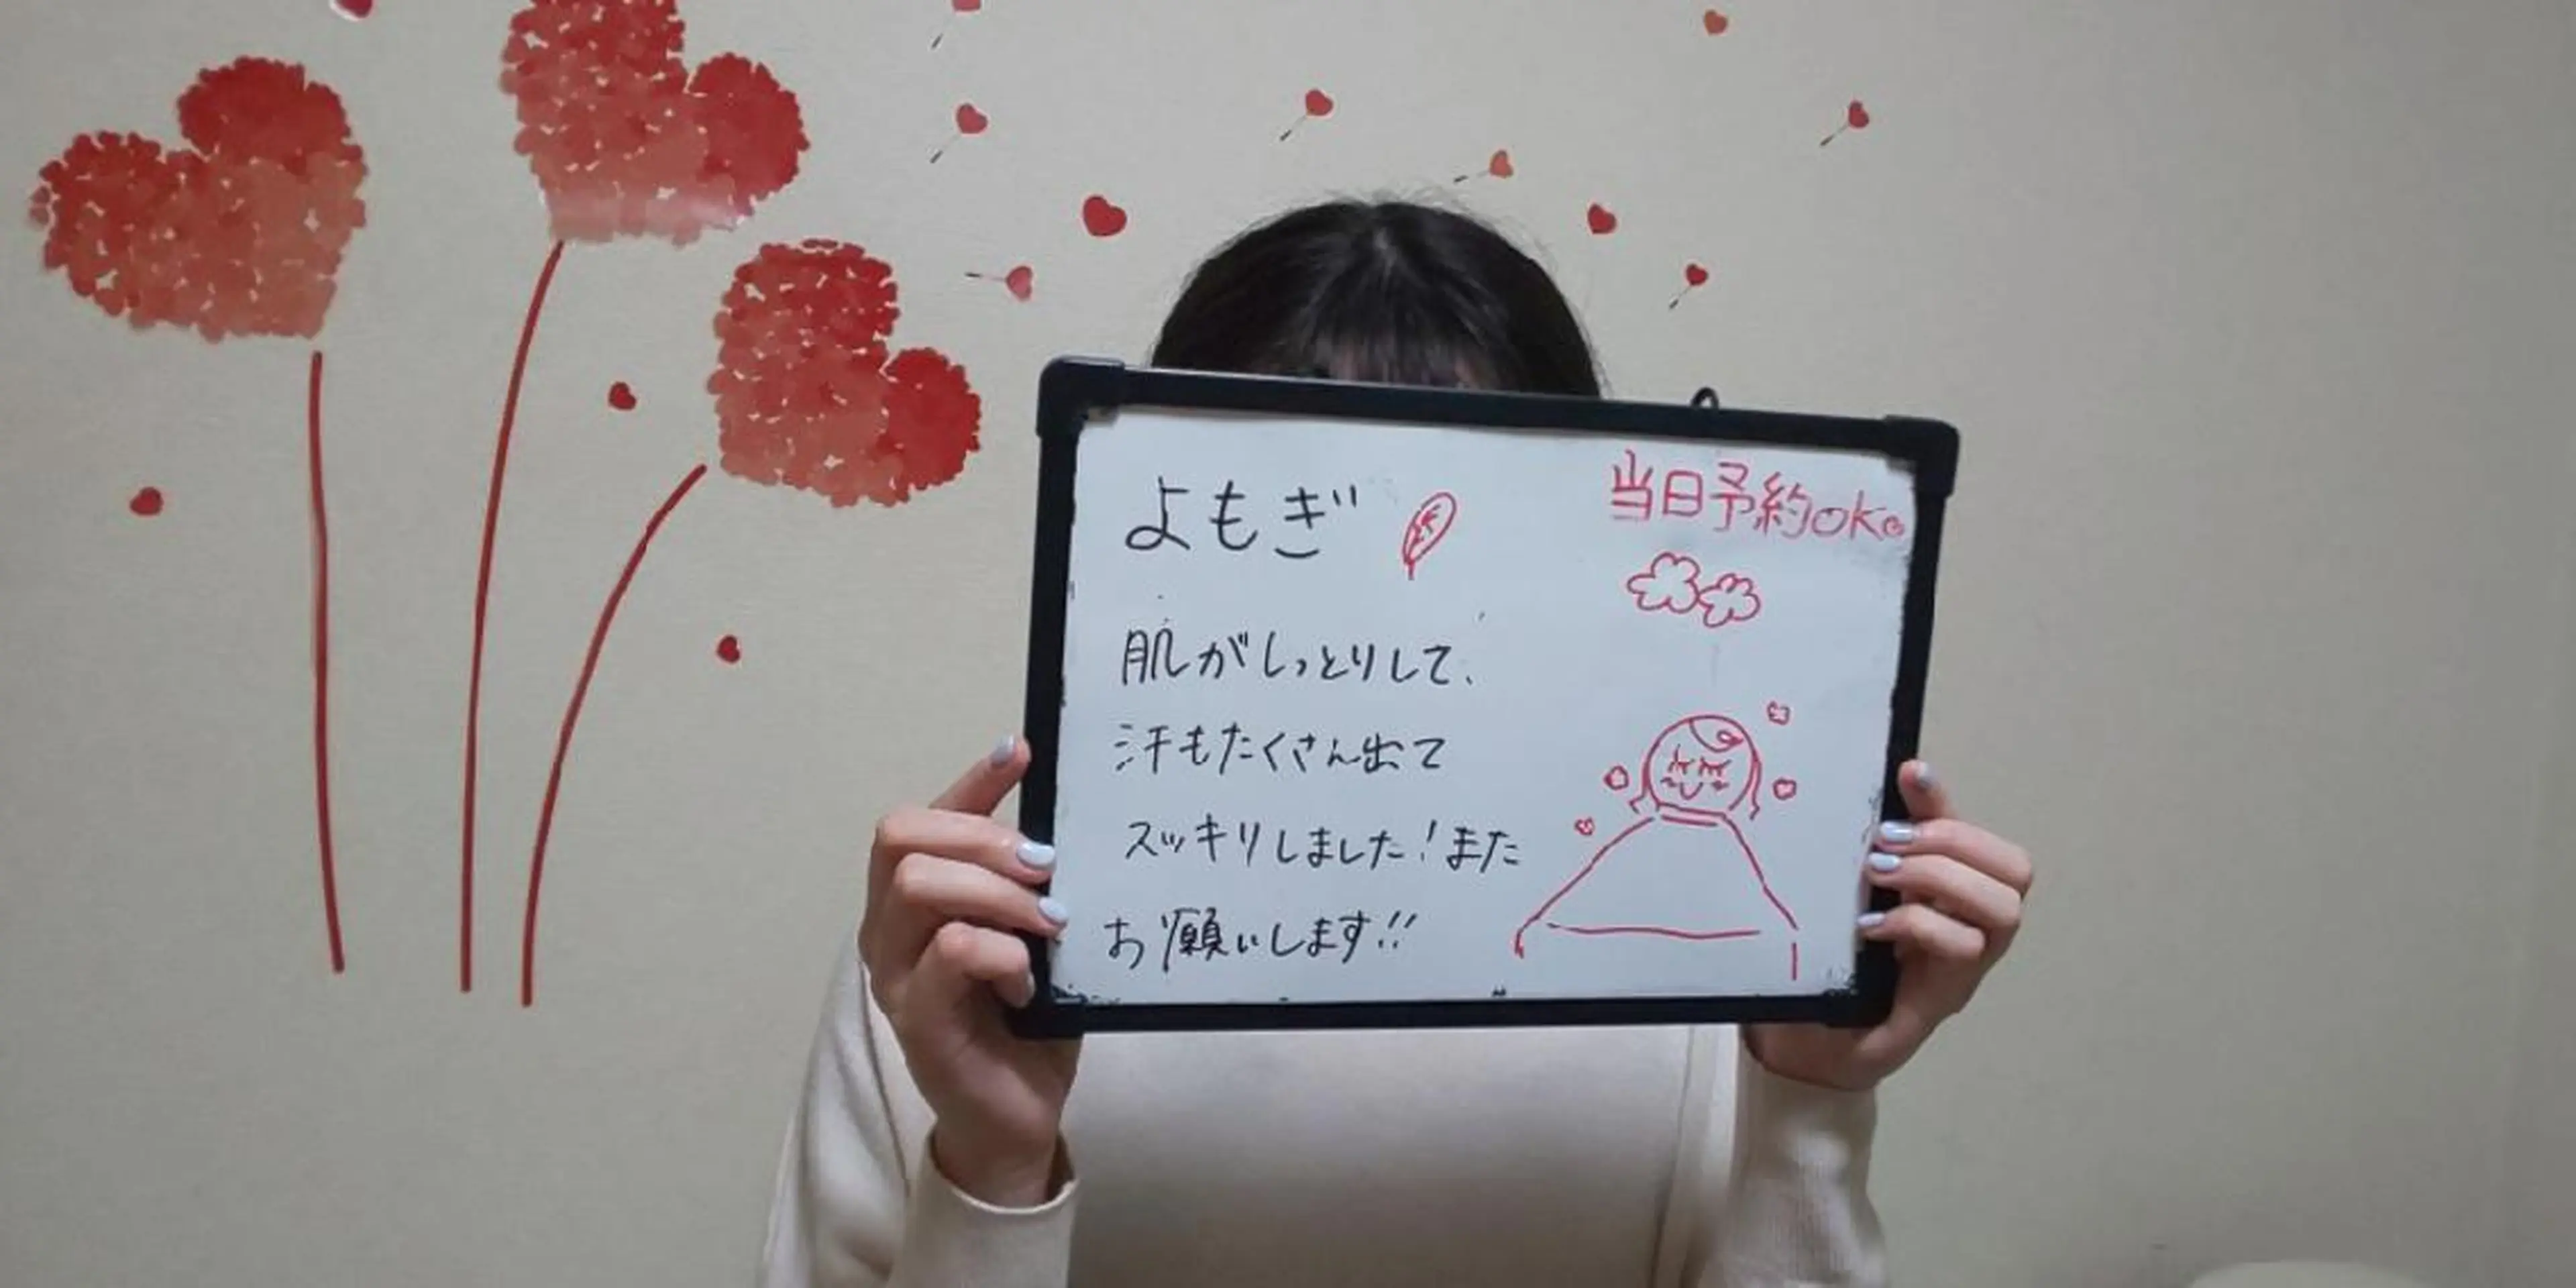 よもぎ
当日予約OK。
肌がしっとりして、
汗もたくさん出て
スッキリしました!また
お願いします!!